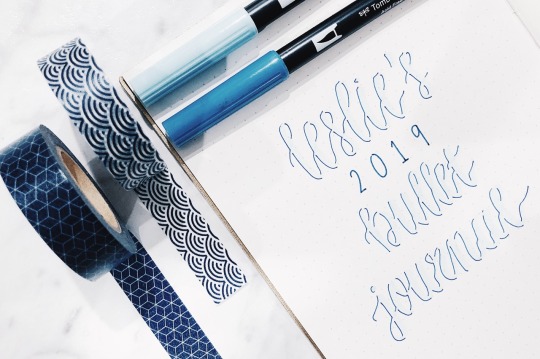 Tombo
leslie's
2019
bullet
journal